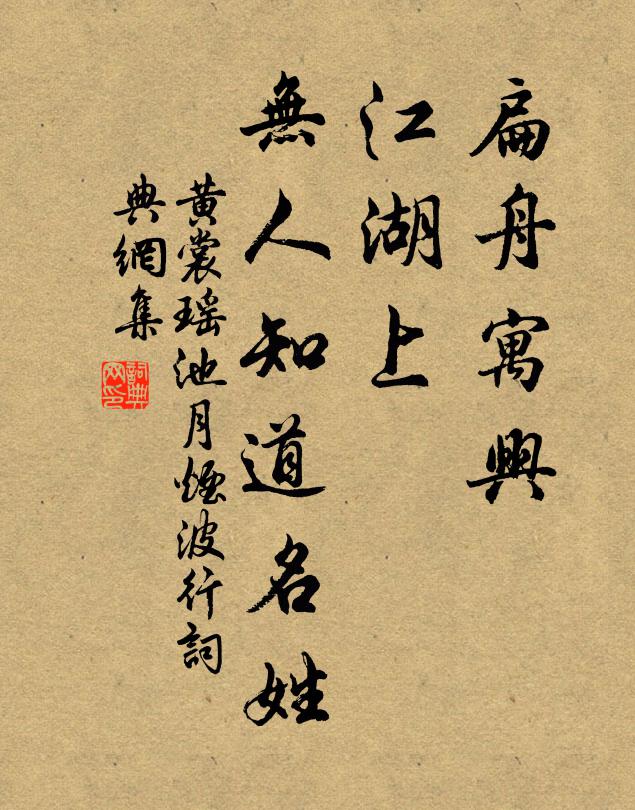 扁舟寓興
江湖上
無人知道名姓
黄裳瑶池月煙波行詞
典網集
詞典網印